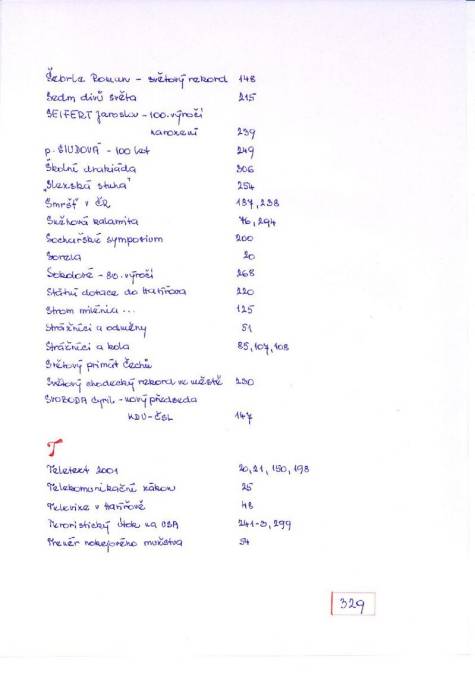 Šebrle Roman - světový rekord 148
Sedm divů světa 215
SEIFERT Jaroslav - 100. výročí
narození 239
p. SIUDOVÁ - 100 let 249
Školní drakiáda 306
"Slezská stuha" 254
Smršť v ČR 137, 238
Sněhová kalamita 76, 294
Sochařské symposium 200
Sorela 20
Sokolové - 80. výročí 268
Státní dotace do Havířova 220
Strom milénia ... 125
Strážníci a odměny 51
Strážníci a kola 85, 107, 108
Světový primát Čechů
Světový chodecký rekord ve městě 230
SVOBODA Cyril - nový předseda
KDU-ČSL 147
T
Teletext 2001 20, 21, 150, 198
Telekomunikační zákon 25
Televize v Havířově 48
Teroristický útok na USA 241-3, 299
Trenér hokejového mužstva 54
329